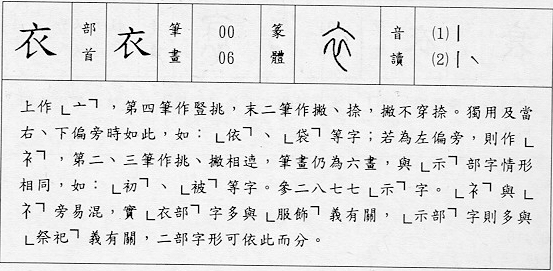 衣 部首 衣 筆畫 00 06 篆體 音讀 (1)ㄧ (2)ㄧˋ
上作「亠」，第四筆作豎挑，末二筆作撇、捺，撇不穿捺。獨用及當
右、下偏旁時如此，如：「依」、「袋」等字；若為左偏旁，則作「
衤」，第二、三筆作挑、撇相連，筆畫仍為六畫，與「示」部字情形
相同，如：「初」、「被」等字。參二八七七「示」字。「衤」與「
礻」旁易混，實「衣部」字多與「服飾」義有關，「示部」字則多與
「祭祀」義有關，二部字形可依此而分。